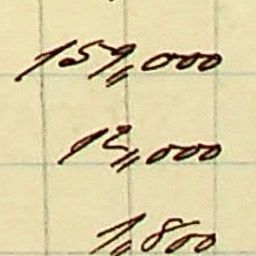 159,000
12,000
1,800